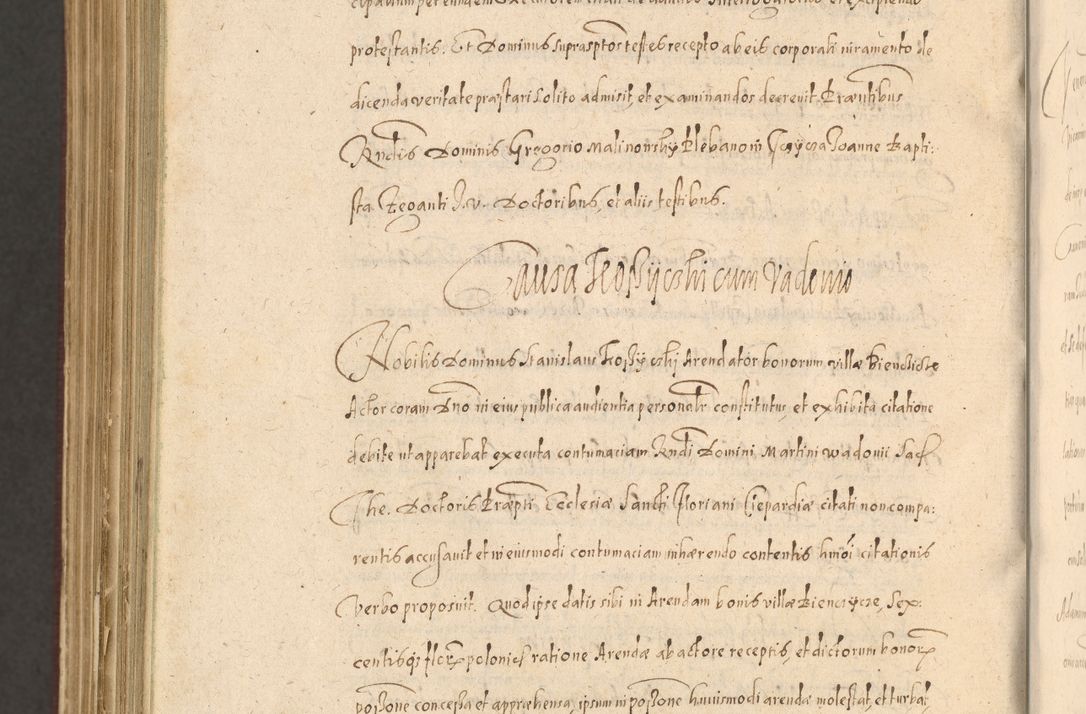 protestantis. Et Dominus suprasptos testes recepto ab eis corporali iuramento de
dicenda veritate præstari solito admisit, et examinandos decrevit. Præntibus
Rndis Dominis Gregorio Malinowsky Plebano in Joanne Bapti:
sta Zeganti J. V. Doctoribus, et aliis testibus.
Causa cum Vadovio
Nobilis Dominus Stanislaus Arendator bonorum villæ
Actor coram Dno in eius publica audientia personalr constitutus, et exhibita citatione
debite ut apparebat executa contumaciam Rndi Domini Martini Wadovii Sac
The. Doctoris Præpti Ecclesiæ Sancti Floriani Clepardiæ citati non compa:
rentis accusavit et in eiusmodi contumaciam inhærendo contentis hmoi citationis
verbo proposuit. Quod ipse datis sibi in Arendam bonis villæ Sex:
centisq flor polonicl ratione Arendæ ab actore receptis, et dictorum bonor
possone concessa et appræhensa, ipsum in possone huiusmodi arendæ molestat, et turbat